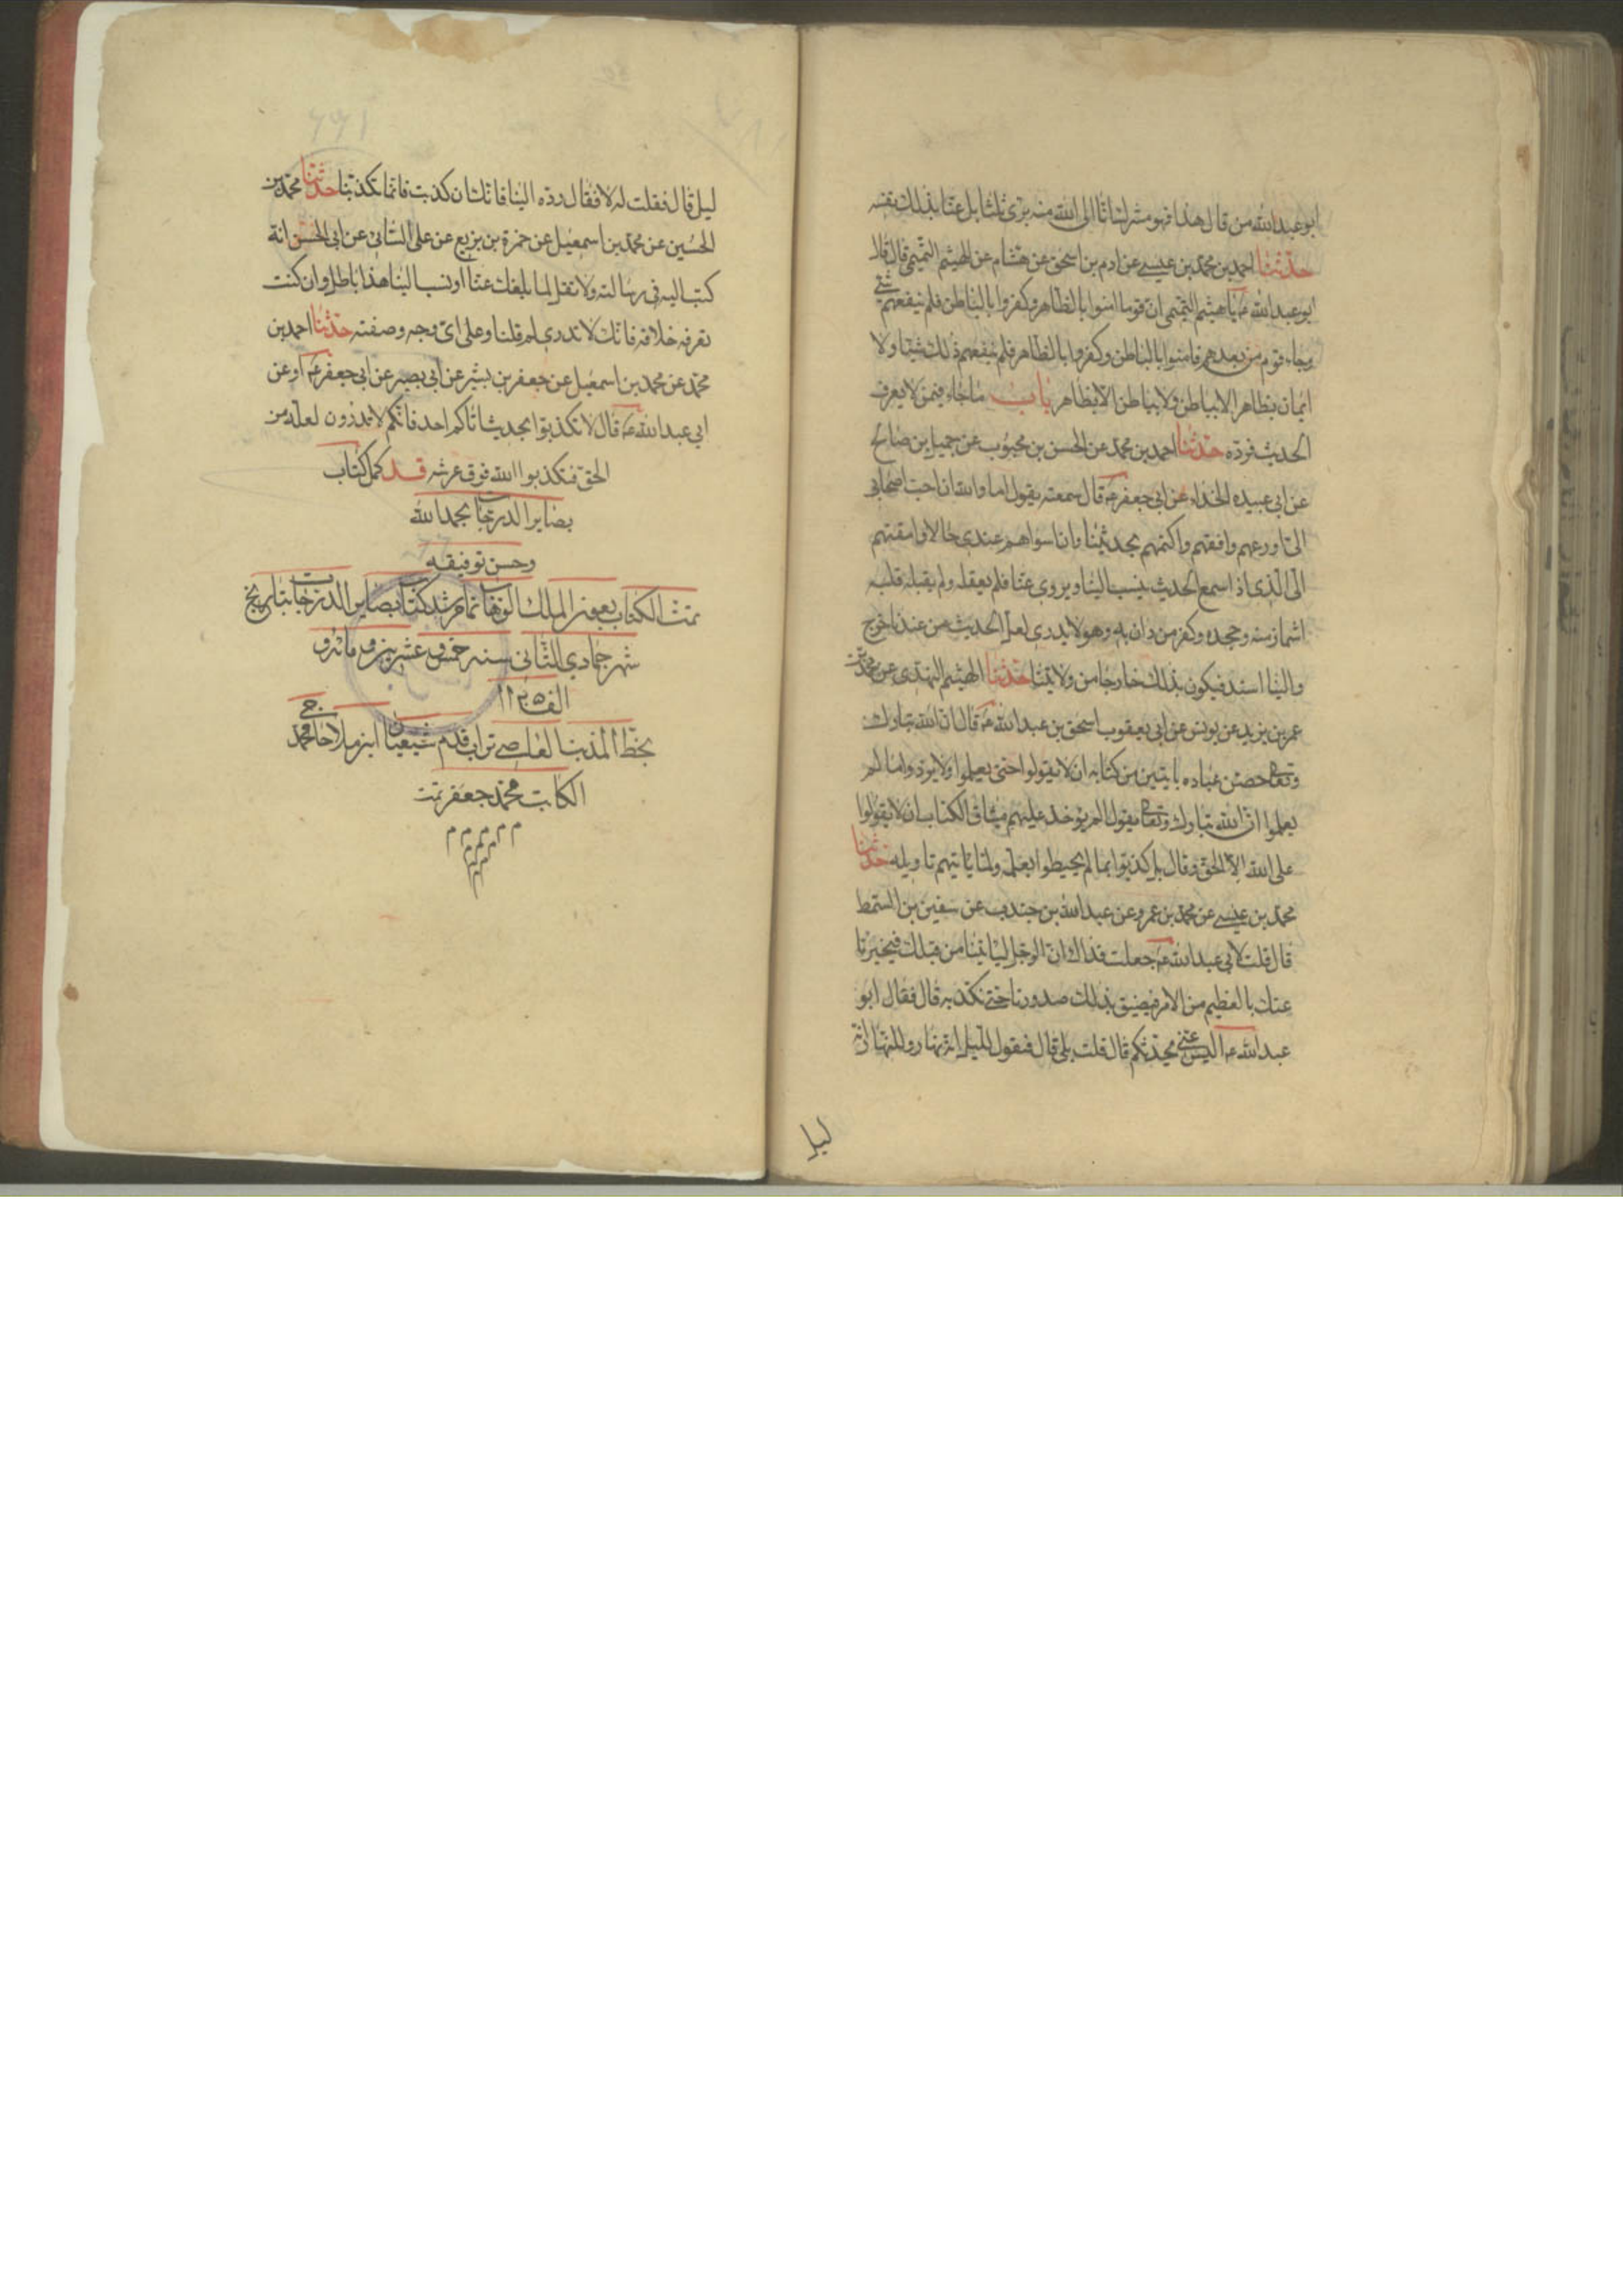 ابو عبد الله من قال هذا فهو مشرك ثلثا انا الى الله منه برئ ثلثا بل عنا بذلك نفسه
حدثنا احمد بن محمد بن عيسى عن ادم بن اسحق عن هشام عن الهيثم التميمى قال قال
ابو عبد الله ع يا هيثم التميمى ان قوما امنوا بالظاهر وكفروا بالباطن فلم ينفعهم شئ
وجاء قوم من بعدهم فامنوا بالباطن وكفروا بالظاهر فلم ينفعهم ذلك شيئا ولا
ايمان بظاهر الا بباطن ولا بباطن الا بظاهر باب ما جاء فيمن لا يعرف
الحديث فرده حدثنا احمد بن محمد عن الحسن بن محبوب عن جميل بن صالح
عن ابى عبيده الحذاء عن ابى جعفر ع قال سمعته يقول اما والله ان احب اصحابى
الى اورعهم وافقههم واكتمهم بحديثنا وان اسواهم عندى حالا وامقتهم
الى الذى اذا سمع الحديث ينسب الينا ويروى عنا فلم يعقله ولم يقبله قلبه
اشمأز منه وجحده وكفر من دان به وهو لا يدرى لعل الحديث من عندنا خرج
والينا اسند فيكون بذلك خارجا من ولايتنا حدثنا الهيثم النهدى عن محمد بن
عمر بن يزيد عن يونس عن ابى يعقوب اسحق بن عبد الله ع قال ان الله تبارك
وتعا حصن عباده بايتين من كتابه ان لا يقولوا حتى يعلموا ولا يردوا ما لم
يعلموا ان الله تبارك وتعا يقول الم يؤخذ عليهم ميثاق الكتاب ان لا يقولوا
على الله الا الحق وقال بل كذبوا بما لم يحيطوا بعلمه ولما ياتيهم تاويله حدثنا
محمد بن عيسى عن محمد بن عمرو عن عبد الله بن جندب عن سفين بن السمط
قال قلت لابى عبد الله ع جعلت فداك ان الرجل لياتينا من قبلك فيخبرنا
عنك بالعظيم من الامر فيضيق بذلك صدورنا حتى نكذبه قال فقال ابو
عبد الله ع اليس عنى يحدثكم قال قلت بلى قال فيقول لليل انه نهار وللنهار انه
ليل
ليل قال فقلت له لا فقال رده الينا فانك ان كذبت فانما تكذبنا حدثنا محمد بن
الحسين عن محمد بن اسمعيل عن حمزة بن بزيع عن على السنانى عن ابى الحسن انه
كتب اليه فى رسالته ولا تقل لما بلغك عنا او نسب الينا هذا باطل وان كنت
تعرفه خلافه فانك لا تدرى لم قلنا وعلى اى وجه وصفته حدثنا احمد بن
محمد عن محمد بن اسمعيل عن جعفر بن بشير عن ابى بصير عن ابى جعفر ع او عن
ابى عبد الله ع قال لا تكذبوا بحديث اتاكم احد فانكم لا تدرون لعله من
الحق فتكذبوا الله فوق عرشه قد كمل كتاب
بصاير الدرجات بحمد الله
وحسن توفيقه
تمت الكتاب بعون الملك الوهاب تمام شد كتاب بصاير الدرجات بتاريخ
شهر جمادى الثانى سنه خمس و عشرين و مائه و
الف ١١٢٥
بخط المذنب العاصى تراب قدم شيعيان ابن ملا حاجى محمد
الكاتب محمد جعفر تمت
م م م م م